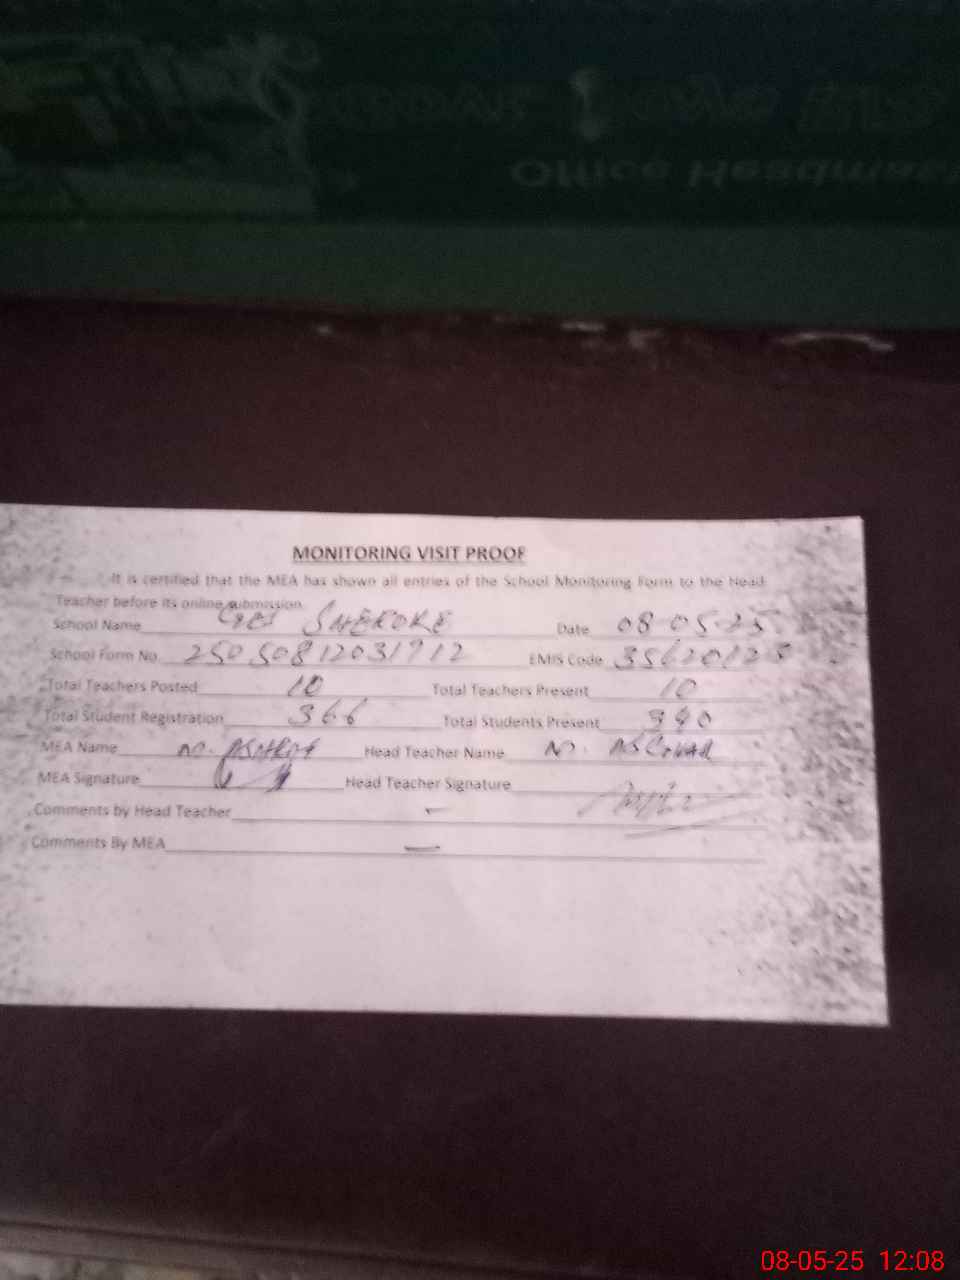 Office Headmas
MONITORING VISIT PROOF
It is certified that the MEA has shown all entries of the School Monitoring Form to the Head
Teacher before its online submission.
School Name GES SHEROKE Date 08-05-25
School Form No. 25050812031912 EMIS Code 35620123
Total Teachers Posted 10 Total Teachers Present 10
Total Student Registration 366 Total Students Present 340
MEA Name M. ASHRAF Head Teacher Name M.
MEA Signature Head Teacher Signature
Comments by Head Teacher -
Comments By MEA —
08-05-25 12:08